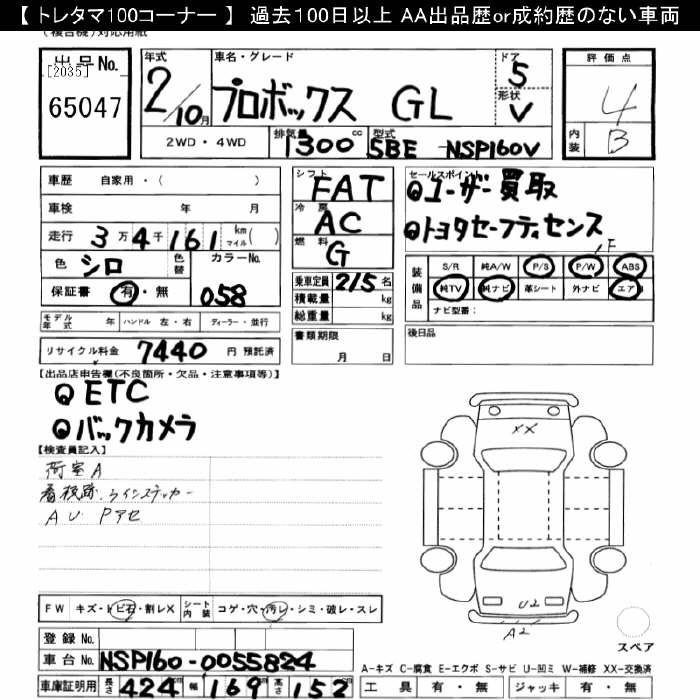 【 トレタマ100コーナー 】 過去100日以上 AA出品歴or成約歴のない車両
(複合機)対応用紙
出品No.
[2035]
65047
年式
2/10月
車名・グレード
プロボックス GL
ドア
5
形状
V
評価点
4
内装
B
2WD・4WD
排気量
1300cc
型式
5BE NSP160V
車歴 自家用・( )
車検 年 月
走行 3万4千161 km マイル( )
色 シロ 色替 カラーNo.
058
保証書 有・無
モデル年式 年 ハンドル 左・右 ディーラー・並行
リサイクル料金 7440 円 預託済
シフト
FAT
冷房
AC
燃料
G
乗車定員 2/5 名
積載量 kg
総重量 kg
書類期限
月 日
セールスポイント
ユーザー買取
トヨタセーフティセンス
F
装備品
S/R 純A/W P/S P/W ABS
純TV 純ナビ 革シート 外ナビ エアB
ナビ型番:
後日品
【出品店申告欄(不良箇所・欠品・注意事項等)】
ETC
バックカメラ
【検査員記入】
荷室A
看板跡、ラインステッカー
AU Pアセ
XX
U2
A2
FW キズ・トビ石・割レX シート内装 コゲ・穴・汚レ・シミ・破レ・スレ
登録No.
車台No. NSP160-0055824
車庫証明用 長さ 424 cm 幅 169 cm 高さ 152 cm
スペア
A-キズ C-腐食 E-エクボ S-サビ U-凹ミ W-補修 XX-交換済
工具 有・無 ジャッキ 有・無